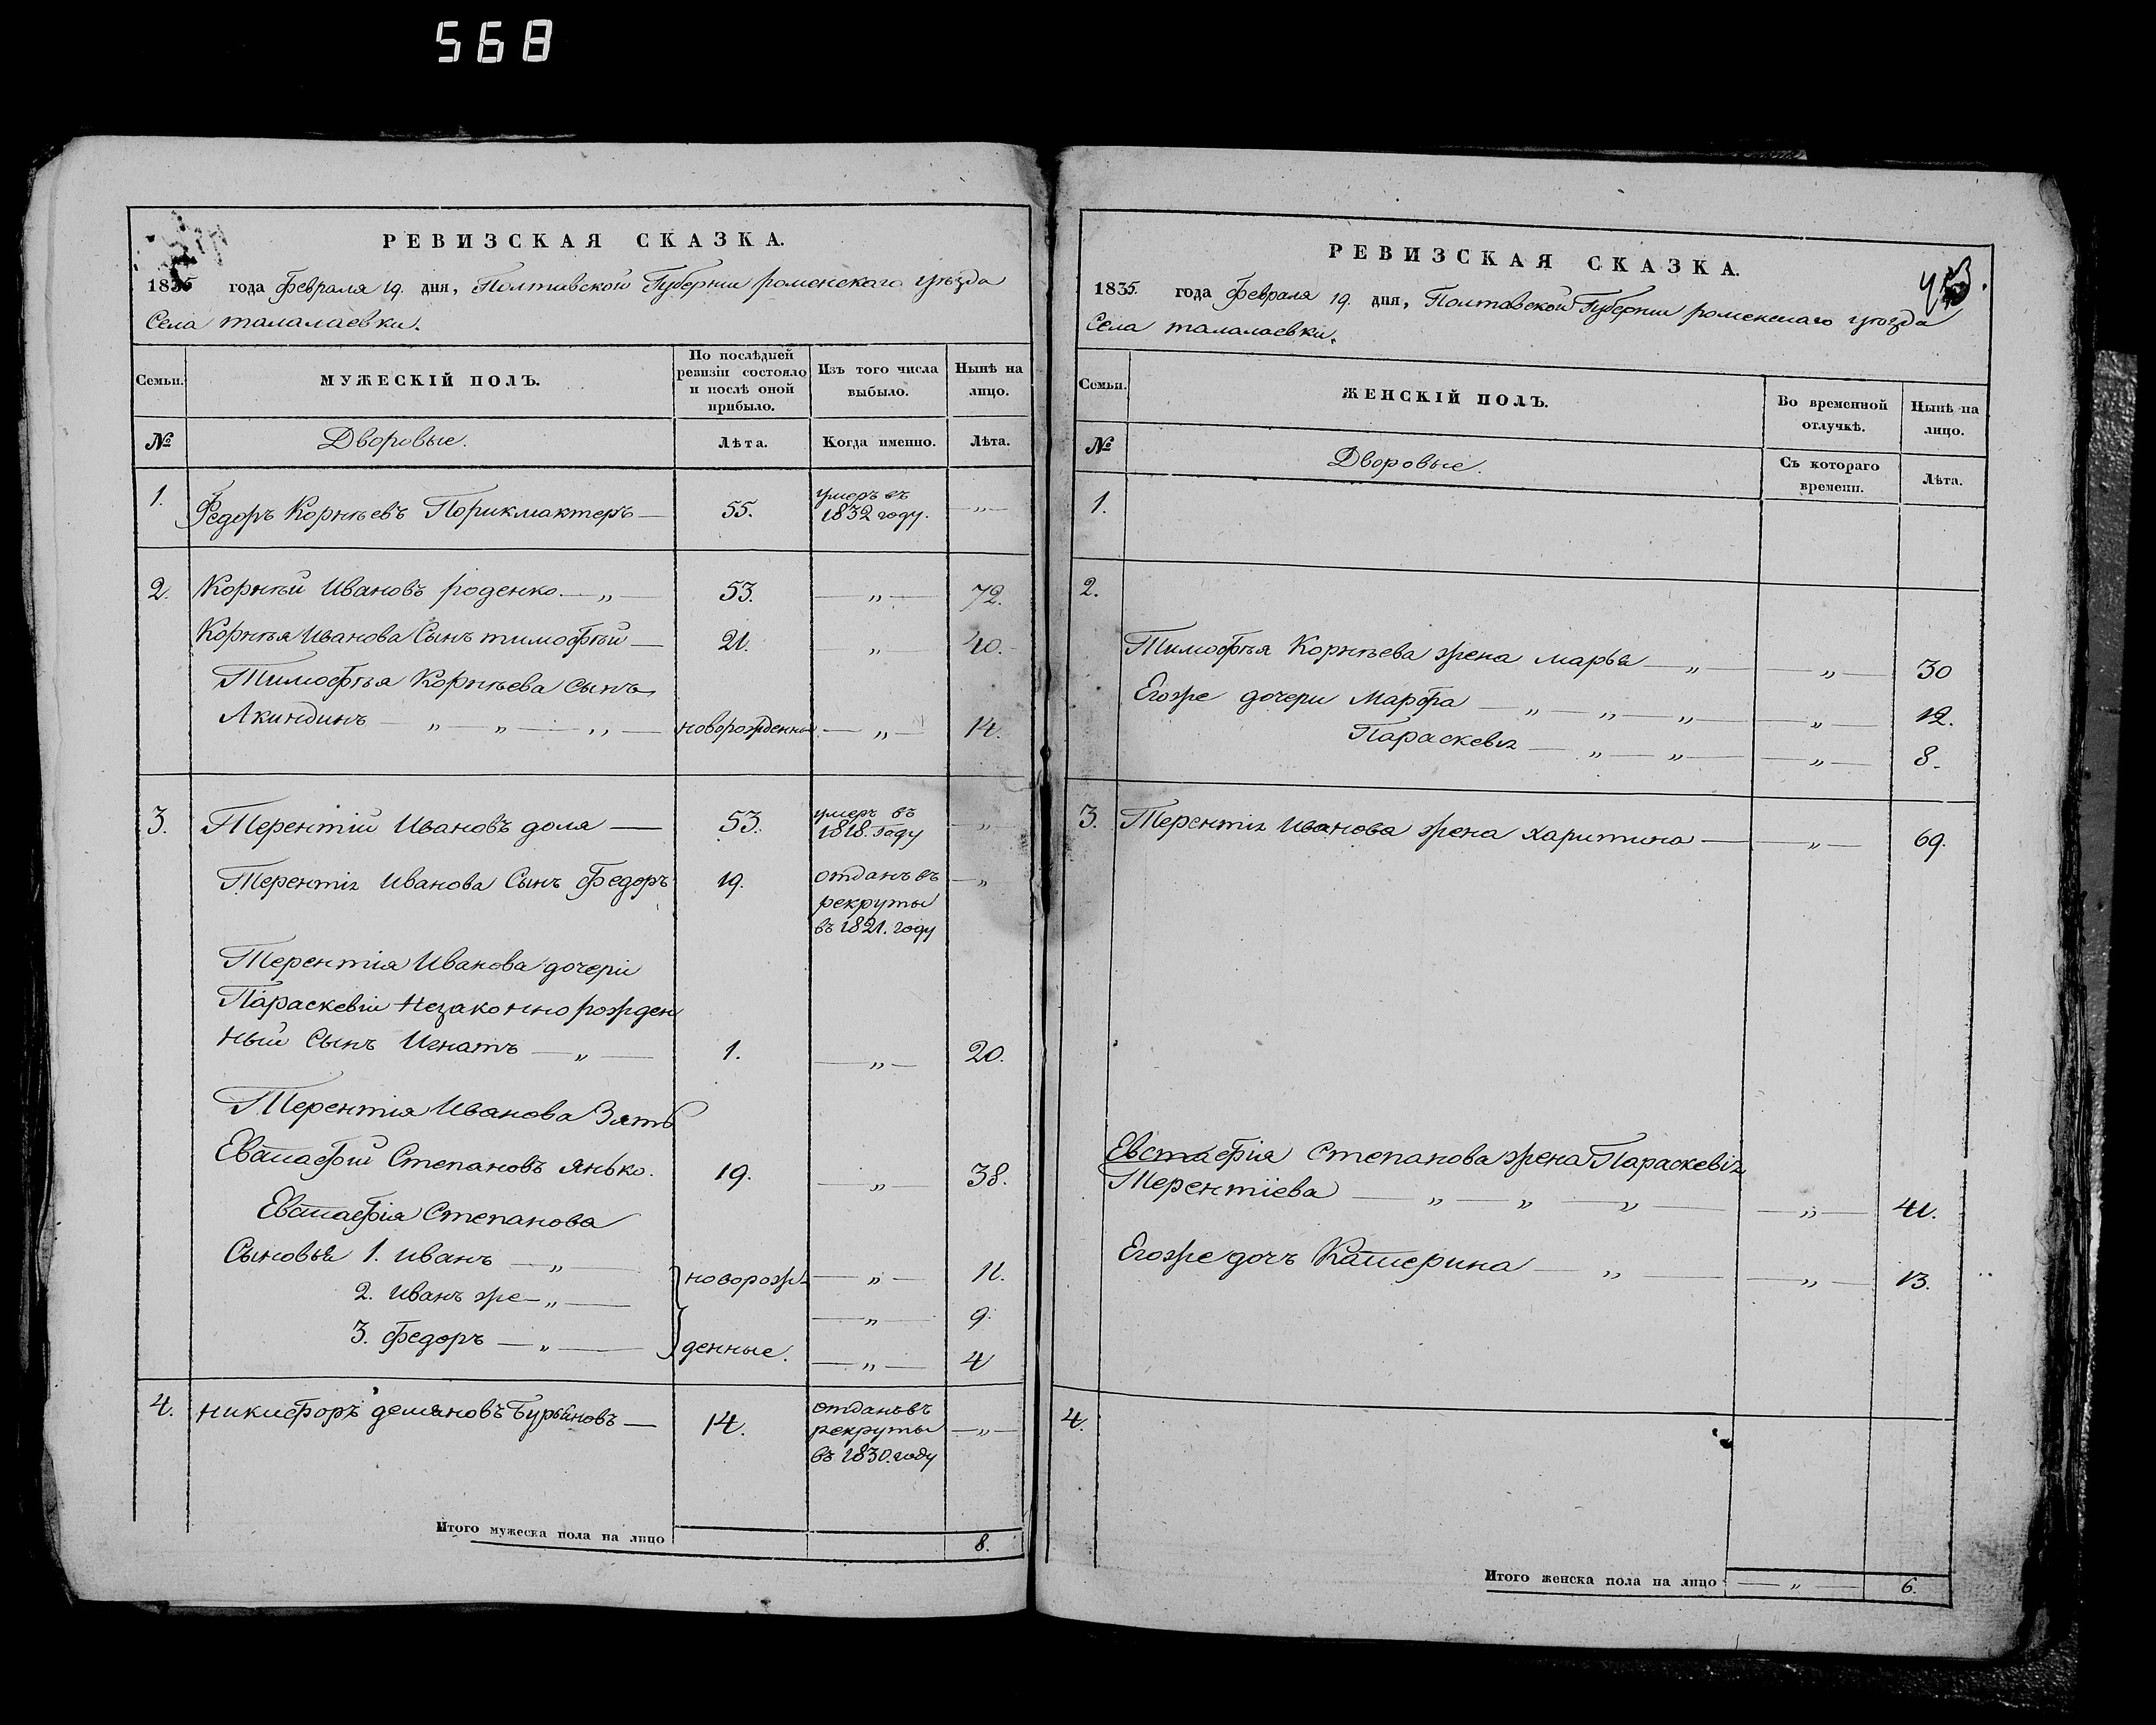 568
РЕВИЗСКАЯ СКАЗКА.
1835 года Февраля 19. дня, Полтавской Губернии роменскаго уѣзда
Села талалаевки.
Семьи.
МУЖЕСКІЙ ПОЛЪ.
По послѣдней
ревизіи состояло
и послѣ оной
прибыло.
Изъ того числа
выбыло.
Нынѣ на
лицо.
№
Дворовые.
Лѣта.
Когда именно.
Лѣта.
1. Федоръ Корнѣевъ Порикмактеръ — 55. умеръ въ —„—
1832 году.
2. Корнѣй Ивановъ роденко. —„— 53. —„— 72.
Корнѣя Иванова Сынъ тимофѣй — 21. —„— 40.
Тимофѣя Корнѣева сынъ
Акиндинъ —„—„—„— новорожденный —„— 14.
3. Терентій Ивановъ доля — 53. умеръ въ —„—
1818. Году
Терентія Иванова Сынъ Федоръ 19. отданъ въ —„
рекруты
въ 1821. году
Терентія Иванова дочери
Параскевіи Незаконно рожден
ный Сынъ Игнатъ —„— 1. —„— 20.
Терентія Иванова Зять
Евстафій Степановъ янько. 19. —„— 38.
Евстафія Степанова
Сыновья 1. иванъ —„— новорож- —„— 11.
2. Иванъ же —„— —„— 9.
3. Федоръ —„— денные. —„— 4
4. никифоръ демяновъ Бурьяновъ — 14. отданъ въ —„—
рекруты
въ 1830. году
Итого мужеска пола на лицо 8.
РЕВИЗСКАЯ СКАЗКА.
1835. года Февраля 19. дня, Полтавской Губернии роменскаго уѣзда
Села талалаевки.
Семьи.
ЖЕНСКІЙ ПОЛЪ.
Во временной
отлучкѣ.
Нынѣ на
лицо.
№
Дворовые.
Съ котораго
времени.
Лѣта.
1.
2.
Тимофѣя Корнѣева жена марья —„— —„— 30
Егоже дочери Марфа —„—„—„— —„— 12.
Параскевія —„—„— —„— 8.
3. Терентія Иванова жена харитина — —„— 69.
Евстафія Степанова жена Параскевія
Терентіева —„—„—„— —„— 41.
Егоже дочъ Катерина —„— —„— 13.
4.
Итого женска пола на лицо —„— 6.